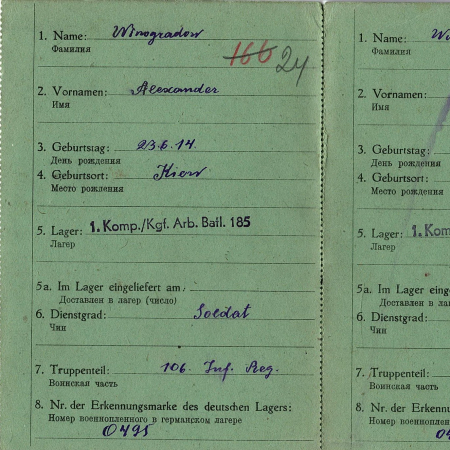 1. Name: Winogradow
Фамилия
166 24
2. Vornamen: Alexander
Имя
3. Geburtstag: 23.6.14.
День рождения
4. Geburtsort: Kiew
Место рождения
5. Lager: 1. Komp./Kgf. Arb. Batl. 185
Лагер
5a. Im Lager eingeliefert am:
Доставлен в лагер (число)
6. Dienstgrad: Soldat
Чин
7. Truppenteil: 106. Inf. Reg.
Воинская часть
8. Nr. der Erkennungsmarke des deutschen Lagers:
Номер военнопленного в германском лагере
0495
1. Name: Wi
Фамилия
2. Vornamen:
Имя
3. Geburtstag:
День рождения
4. Geburtsort:
Место рождения
5. Lager: 1. Kom
Лагер
5a. Im Lager eing
Доставлен в ла
6. Dienstgrad:
Чин
7. Truppenteil:
Воинская часть
8. Nr. der Erkennu
Номер военноплен
04